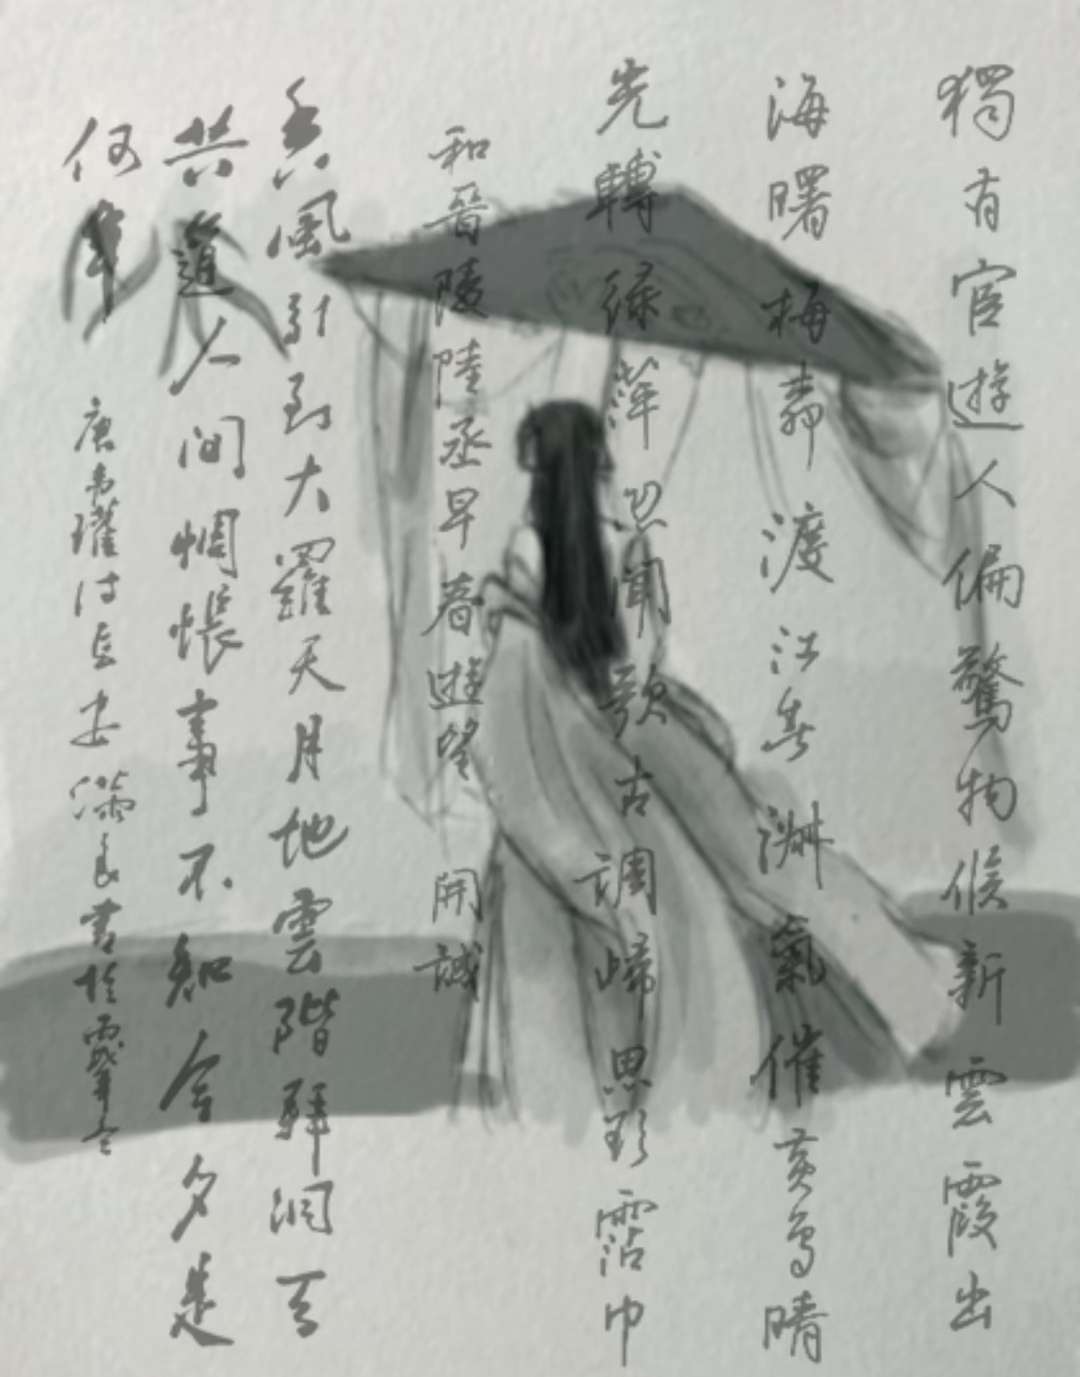 獨有宦遊人偏驚物候新雲霞出
海曙梅渡江春淑氣催黃鳥晴
光轉綠蘋忽聞歌古調歸思欲霑巾
和晉陵陸丞早春遊望 開誠
香風引到大羅天月地雲階拜洞
共道人間惆悵事不知今夕是
何年
唐韋瓘詩 書於